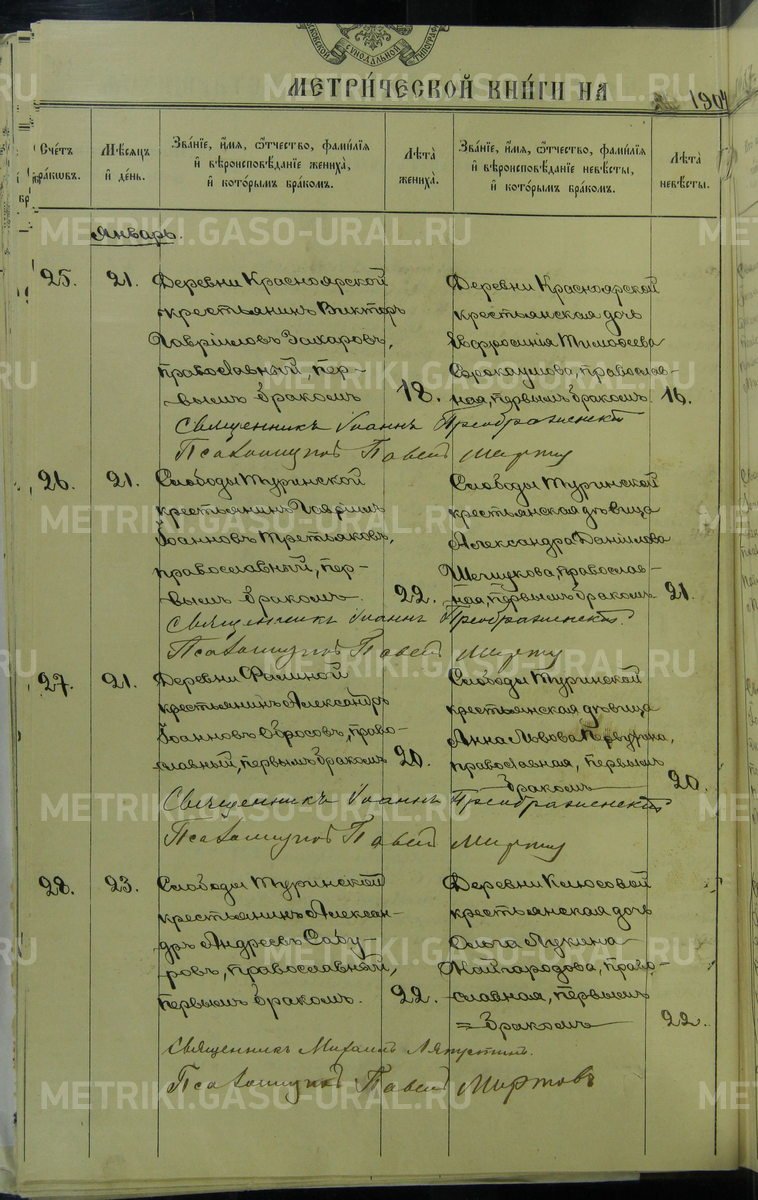 МОСКОВСКОЙ СѴНОДАЛЬНОЙ ТИПОГРАФІИ
МЕТРИ́ЧЕСКОЙ КНИ́ГИ НА 1904
Сче́тъ бра́ковъ.
Мѣ́сяцъ и҆ де́нь.
Зва́нїе, и҆́мя, ѻ҆́тчество, фами́лїя и҆ вѣроисповѣ́данїе жениха̀, и҆ кото́рымъ бра́комъ.
Лѣ́та жениха̀.
Зва́нїе, и҆́мя, ѻ҆́тчество, фами́лїя и҆ вѣроисповѣ́данїе невѣ́сты, и҆ кото́рымъ бра́комъ.
Лѣ́та невѣ́сты.
Январь.
25. 21. Деревни Красноярской
крестьянинъ Викторъ
Гавріиловъ Захаровъ,
православный, пер-
вымъ бракомъ 18.
Деревни Красноярской
крестьянская дочь
Евфросинія Тимоѳеева
православ-
ная, первымъ бракомъ. 16.
Священникъ Іоаннъ Преображенскій
Псаломщикъ Павелъ Миртов
26. 21. Слободы Туринской
крестьянинъ Гавріилъ
Іоанновъ Третьяковъ,
православный, пер-
вымъ бракомъ 22.
Слободы Туринской
крестьянская дѣвица
Александра Даніилова
православ-
ная, первымъ бракомъ 21.
Священникъ Іоаннъ Преображенскій.
Псаломщикъ Павелъ Миртов
27. 21. Деревни Фоминой
крестьянинъ Александръ
Іоанновъ Обросовъ, право-
славный, первымъ бракомъ 20.
Слободы Туринской
крестьянская дѣвица
Анна Львова Первухина,
православная, первымъ
бракомъ 20.
Священникъ Іоаннъ Преображенскій
Псаломщикъ Павелъ Миртов
28. 23. Слободы Туринской
крестьянинъ Алексан-
дръ Андреевъ Сабу-
ровъ, православный,
первымъ бракомъ. 22.
Деревни Клюсовой
крестьянская дочь
Ольга Лукина
Найгородова, право-
славная, первымъ
бракомъ 22.
Священникъ Михаилъ Ляпустинъ.
Псаломщикъ Павелъ Миртовъ
METRIKI.GASO-URAL.RU